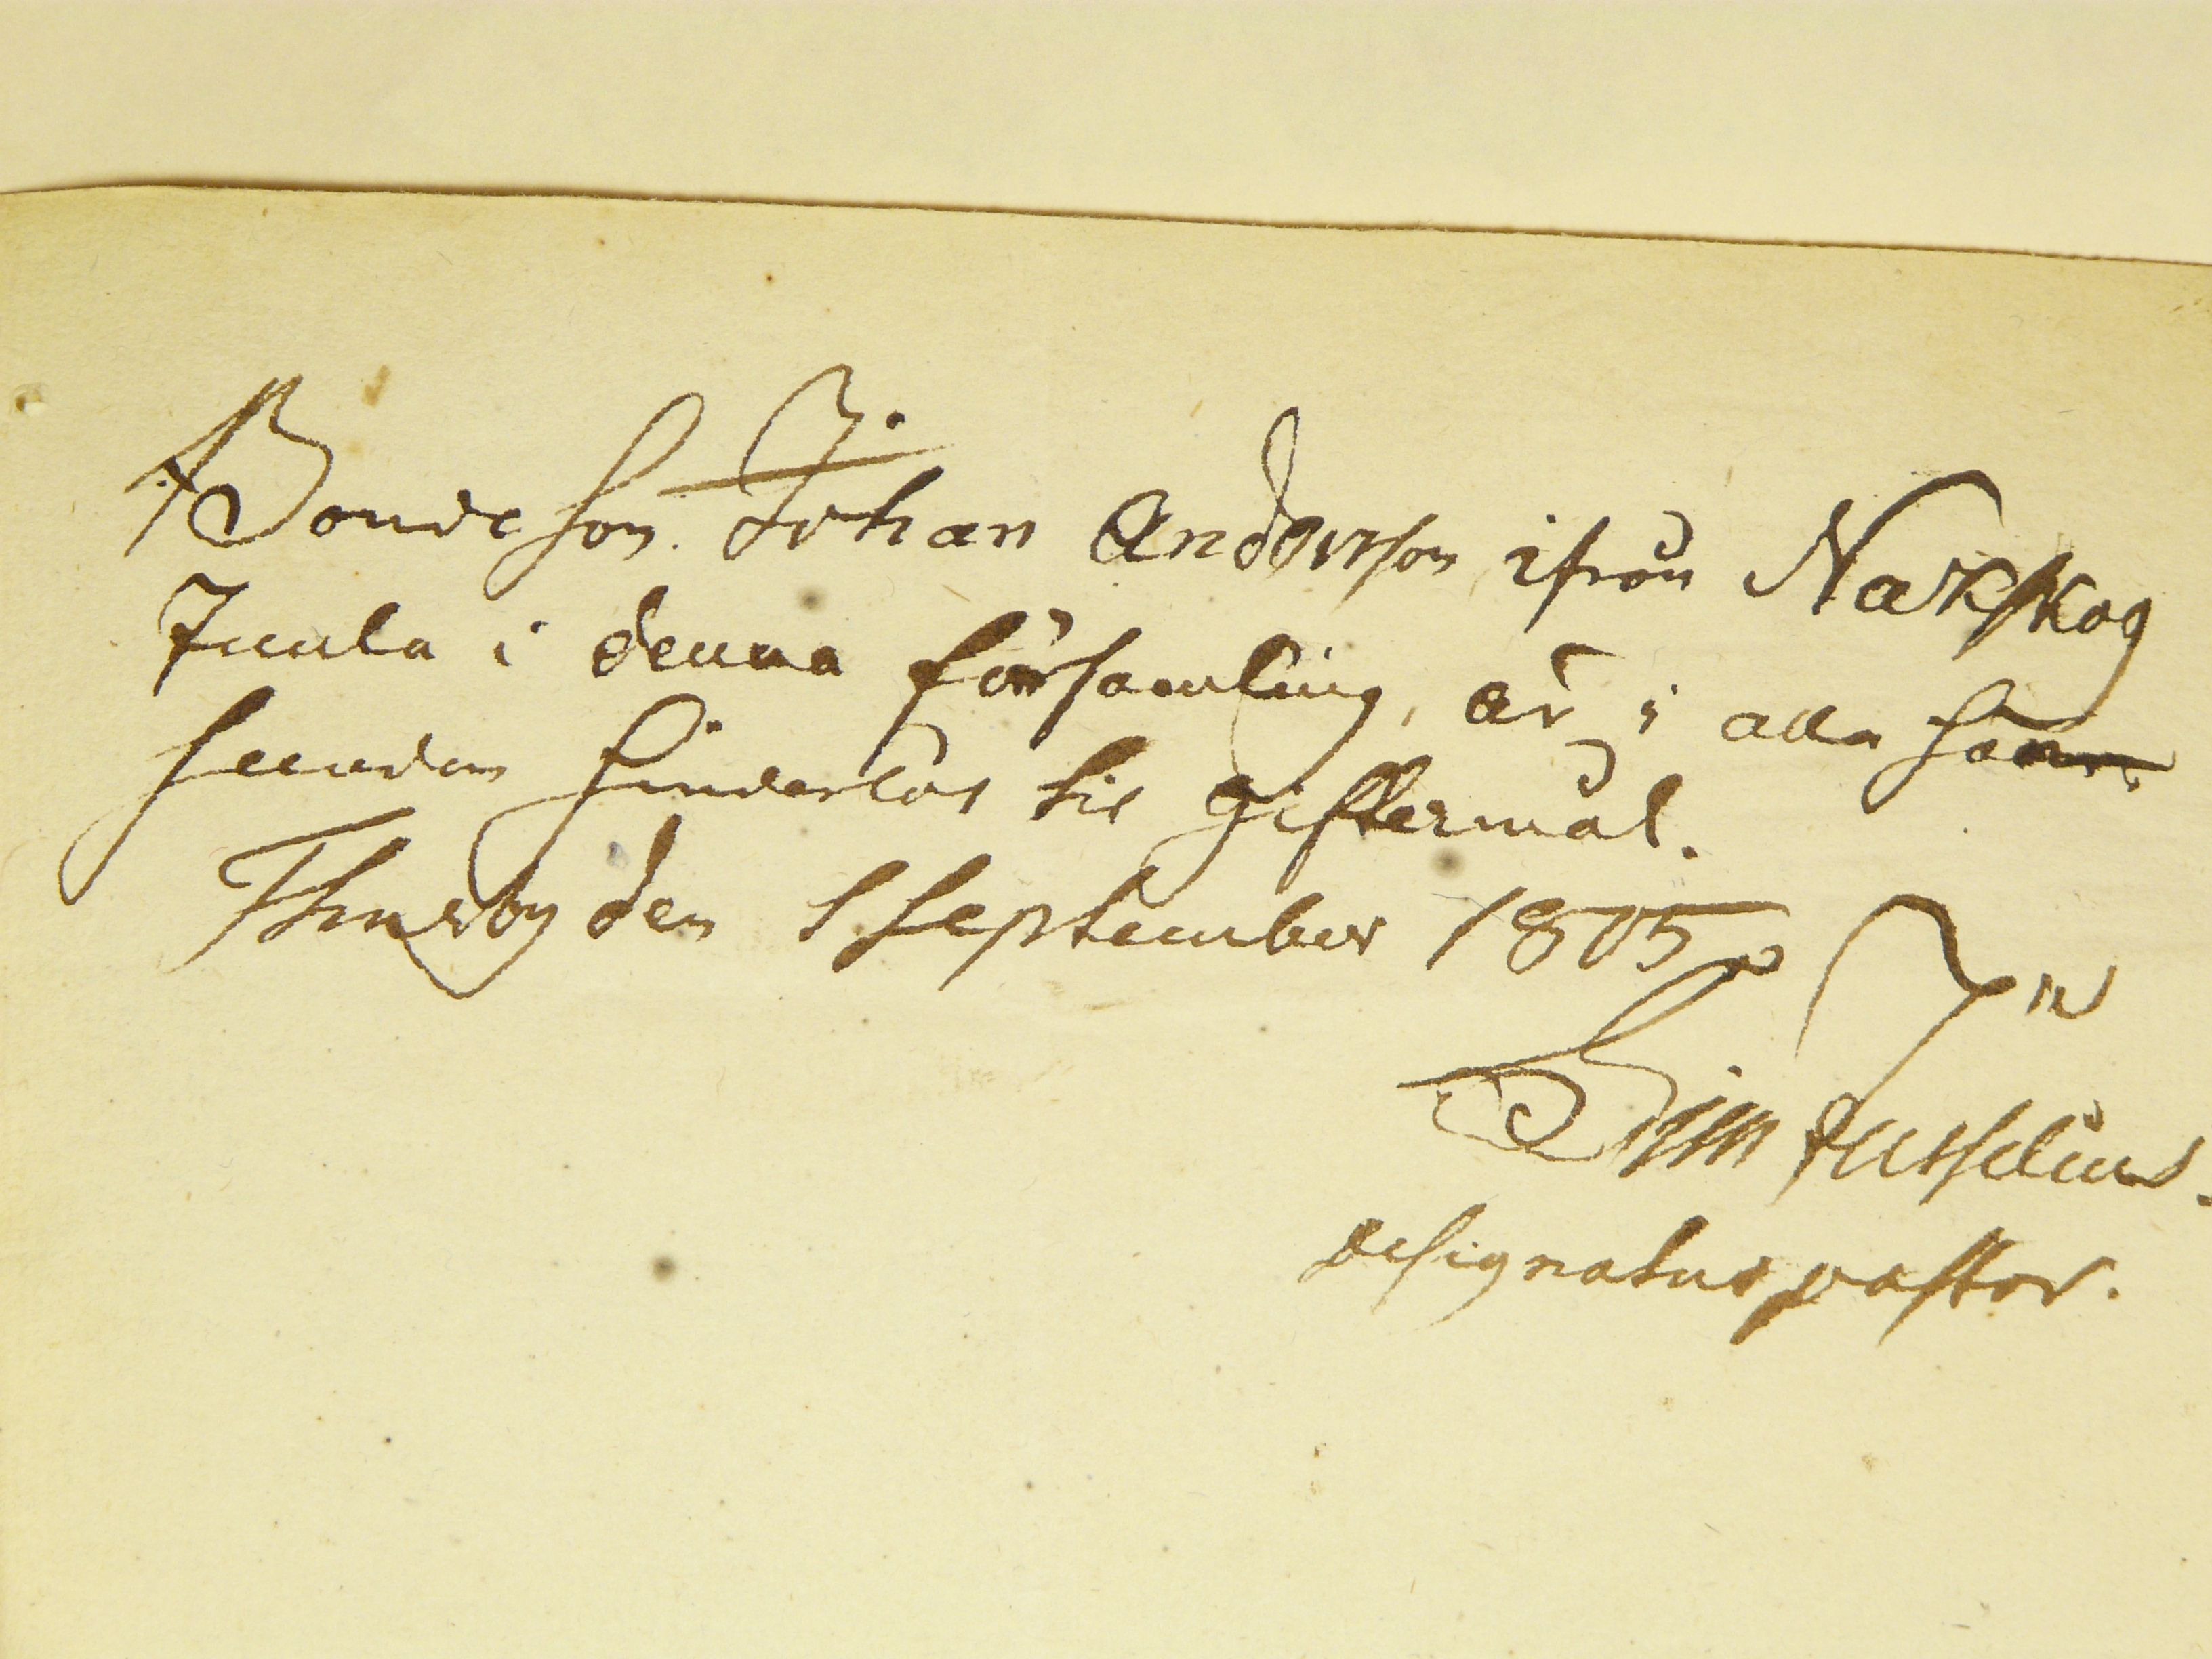 Bondeson. Johan Anderson ifrån Natskog
Juula i denna församling, är i alla hän
seenden hinderlös till giftermål.
Thureby den 1 September 1805
Sim
designatus pastor.